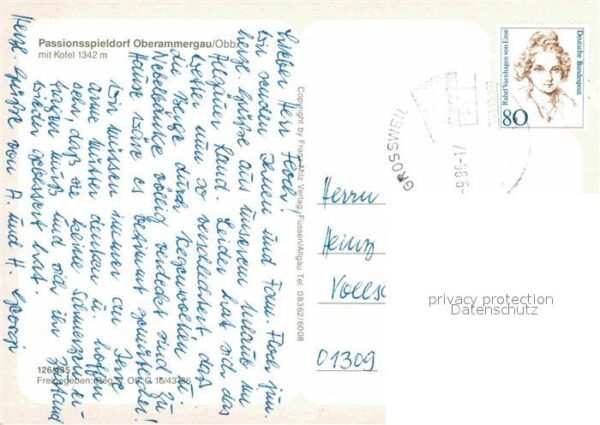 Passionsspieldorf Oberammergau/Obb.
mit Kofel 1342 m
Lieber Herr Floch!
Wir senden Ihnen und Frau Floch jun.
herzl. Grüße aus unserem Urlaub im
Leider hat sich das
Wetter nun so verschlechtert, daß
die Berge durch Regenwolken u.
Nebeldunst völlig verdeckt sind. Zu
Hause wäre es bestimmt gemütlicher!
Wir müssen immer an Ihre
arme Mutter denken u. hoffen
sehr, daß sie keine Schmerzen er-
tragen muß und sich ihr Zustand
wieder gebessert hat.
Herzl. Grüße von A. und H. Georgi
Copyright by Franz Milz Verlag, Füssen/Allgäu Tel. 08362/6008
126/
Freigegeben: Reg. v. Obb. G 16/43
Deutsche Bundespost
Rahel Varnhagen von Ense
80
GROSSWEIL
Herrn
Heinz
01309
privacy protection
Datenschutz